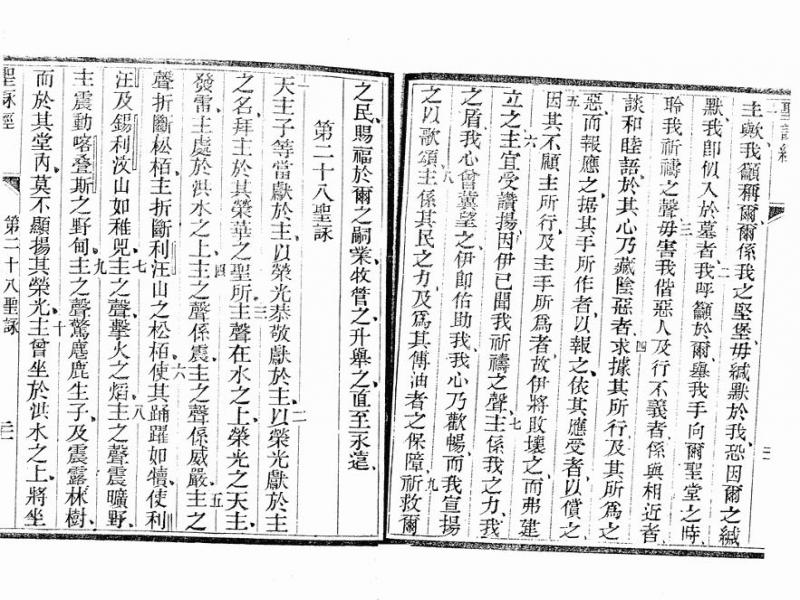 聖詠經
主歟我籲稱爾爾係我之堅堡毋緘默於我恐因爾之緘
默我卽似入於墓者我呼籲於爾舉我手向爾聖堂之時
聆我祈禱之聲毋害我偕惡人及行不義者係與相近者
談和睦語於其心乃藏陰惡者求據其所行及其所為之
惡而報應之据其手所作者以報之依其應受者以償之
因其不顧主所行及主手所為者故伊將敗壞之而弗建
立之主宜受讚揚因伊已聞我祈禱之聲主係我之力我
之盾我心曾冀望之伊卽佑助我我心乃歡暢而我宣揚
之以歌頌主係其民之力及為其傅油者之保障祈救爾
之民賜福於爾之嗣業牧管之升舉之直至永遠
第二十八聖詠
天主子等當獻於主以榮光恭敬獻於主以榮光獻於主
之名拜主於其榮華之聖所主聲在水之上榮光之天主
發雷主處於洪水之上主之聲係震主之聲係威嚴主之
聲折斷松栢主折斷利汪山之松栢使其踊躍如犢使利
汪及錫利汶山如稚兕主之聲擊火之熖主之聲震曠野
主震動喀疊斯之野甸主之聲驚麀鹿生子及震露林樹
而於其堂內莫不顯揚其榮光主曾坐於洪水之上將坐
聖詠經 第二十八聖詠